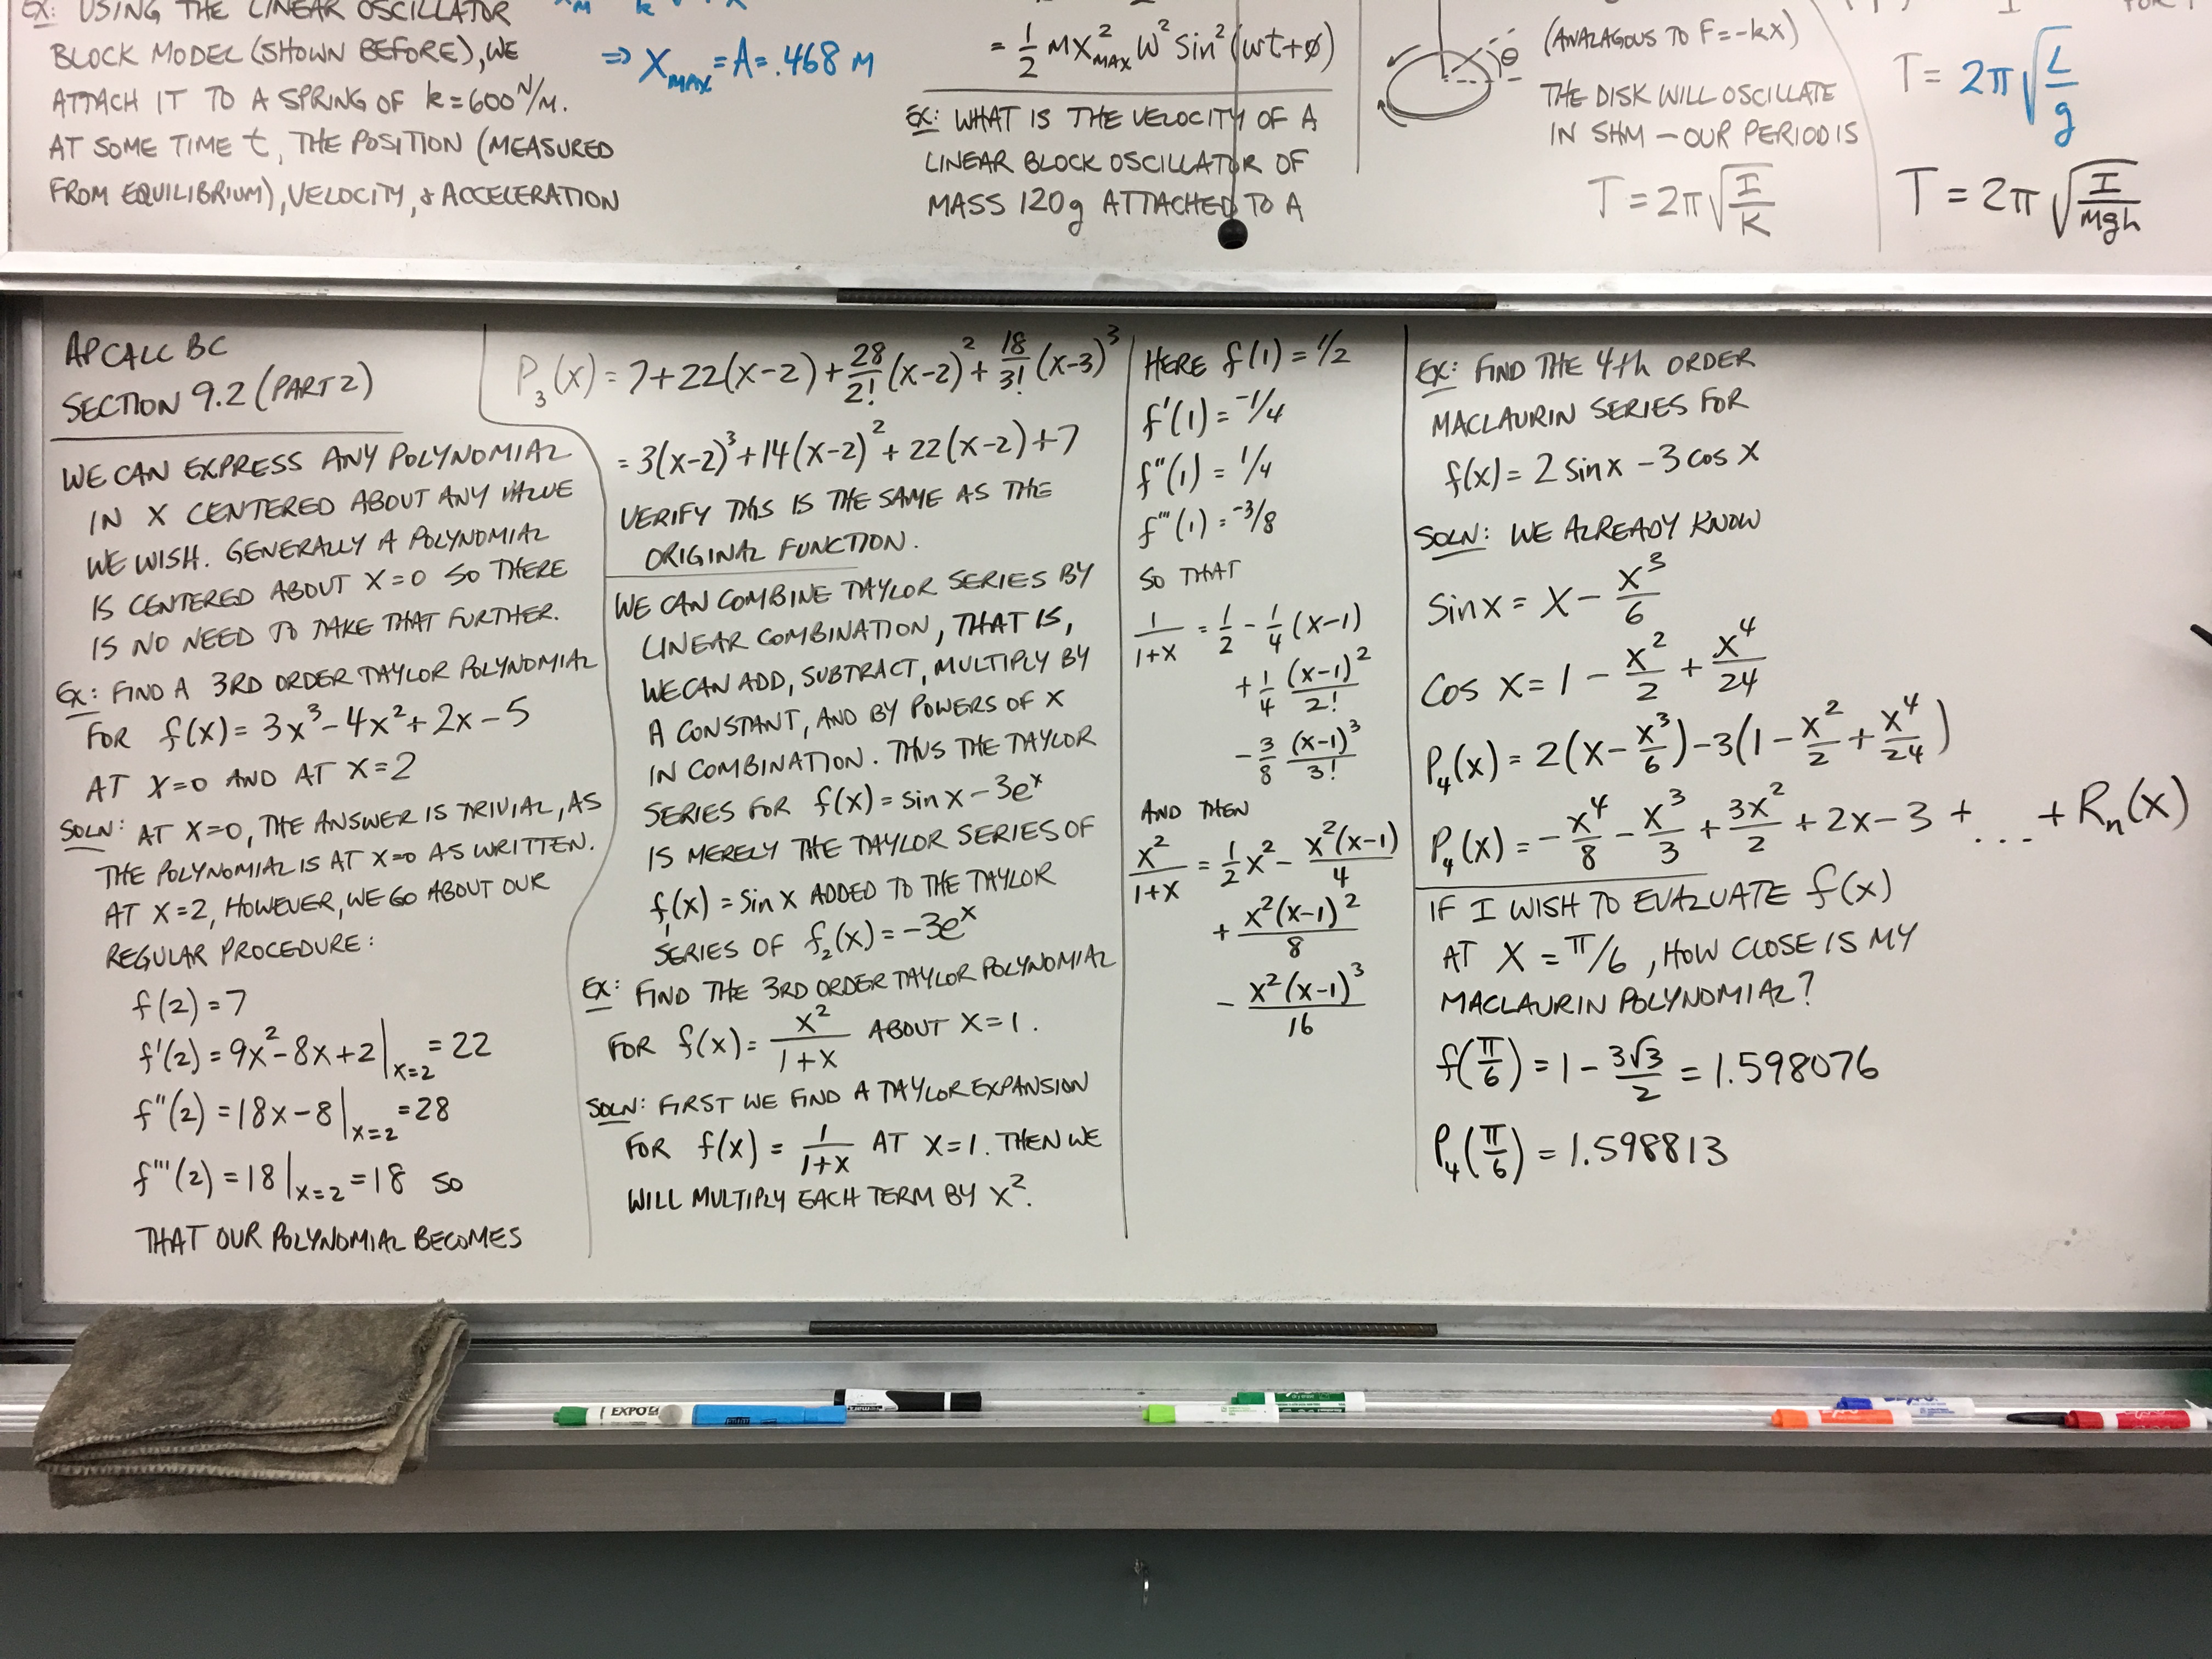 EX: USING THE LINEAR OSCILLATOR
BLOCK MODEL (SHOWN BEFORE), WE
ATTACH IT TO A SPRING OF k=600 N/M.
AT SOME TIME t, THE POSITION (MEASURED
FROM EQUILIBRIUM), VELOCITY, & ACCELERATION
⇒ X_MAX = A = .468 M
= 1/2 MX²_MAX W² sin²(wt+φ)
EX: WHAT IS THE VELOCITY OF A
LINEAR BLOCK OSCILLATOR OF
MASS 120g ATTACHED TO A
θ
(ANALAGOUS TO F=-kX)
THE DISK WILL OSCILLATE
IN SHM — OUR PERIOD IS
T = 2π√(I/K)
T = 2π√(L/g)
T = 2π√(I/Mgh)
AP CALC BC
SECTION 9.2 (PART 2)
WE CAN EXPRESS ANY POLYNOMIAL
IN X CENTERED ABOUT ANY VALUE
WE WISH. GENERALLY A POLYNOMIAL
IS CENTERED ABOUT X=0 SO THERE
IS NO NEED TO TAKE THAT FURTHER.
EX: FIND A 3RD ORDER TAYLOR POLYNOMIAL
FOR f(x) = 3x³-4x²+2x-5
AT X=0 AND AT X=2
SOLN: AT X=0, THE ANSWER IS TRIVIAL, AS
THE POLYNOMIAL IS AT X=0 AS WRITTEN.
AT X=2, HOWEVER, WE GO ABOUT OUR
REGULAR PROCEDURE:
f(2) = 7
f'(2) = 9x²-8x+2|x=2 = 22
f''(2) = 18x-8|x=2 = 28
f'''(2) = 18|x=2 = 18 SO
THAT OUR POLYNOMIAL BECOMES
P₃(x) = 7+22(x-2)+28/2!(x-2)²+18/3!(x-3)³
= 3(x-2)³+14(x-2)²+22(x-2)+7
VERIFY THIS IS THE SAME AS THE
ORIGINAL FUNCTION.
WE CAN COMBINE TAYLOR SERIES BY
LINEAR COMBINATION, THAT IS,
WE CAN ADD, SUBTRACT, MULTIPLY BY
A CONSTANT, AND BY POWERS OF X
IN COMBINATION. THUS THE TAYLOR
SERIES FOR f(x) = sin x - 3eˣ
IS MERELY THE TAYLOR SERIES OF
f₁(x) = sin x ADDED TO THE TAYLOR
SERIES OF f₂(x) = -3eˣ
EX: FIND THE 3RD ORDER TAYLOR POLYNOMIAL
FOR f(x) = x²/(1+x) ABOUT X=1.
SOLN: FIRST WE FIND A TAYLOR EXPANSION
FOR f(x) = 1/(1+x) AT X=1. THEN WE
WILL MULTIPLY EACH TERM BY X².
HERE f(1) = 1/2
f'(1) = -1/4
f''(1) = 1/4
f'''(1) = -3/8
SO THAT
1/(1+x) = 1/2 - 1/4 (x-1)
+ 1/4 (x-1)²/2!
- 3/8 (x-1)³/3!
AND THEN
x²/(1+x) = 1/2 x² - x²(x-1)/4
+ x²(x-1)²/8
- x²(x-1)³/16
EX: FIND THE 4th ORDER
MACLAURIN SERIES FOR
f(x) = 2 sin x - 3 cos x
SOLN: WE ALREADY KNOW
sin x = x - x³/6
cos x = 1 - x²/2 + x⁴/24
P₄(x) = 2(x - x³/6) - 3(1 - x²/2 + x⁴/24)
P₄(x) = -x⁴/8 - x³/3 + 3x²/2 + 2x - 3 + ... + Rₙ(x)
IF I WISH TO EVALUATE f(x)
AT X = π/6, HOW CLOSE IS MY
MACLAURIN POLYNOMIAL?
f(π/6) = 1 - 3√3/2 = 1.598076
P₄(π/6) = 1.598813
EXPO